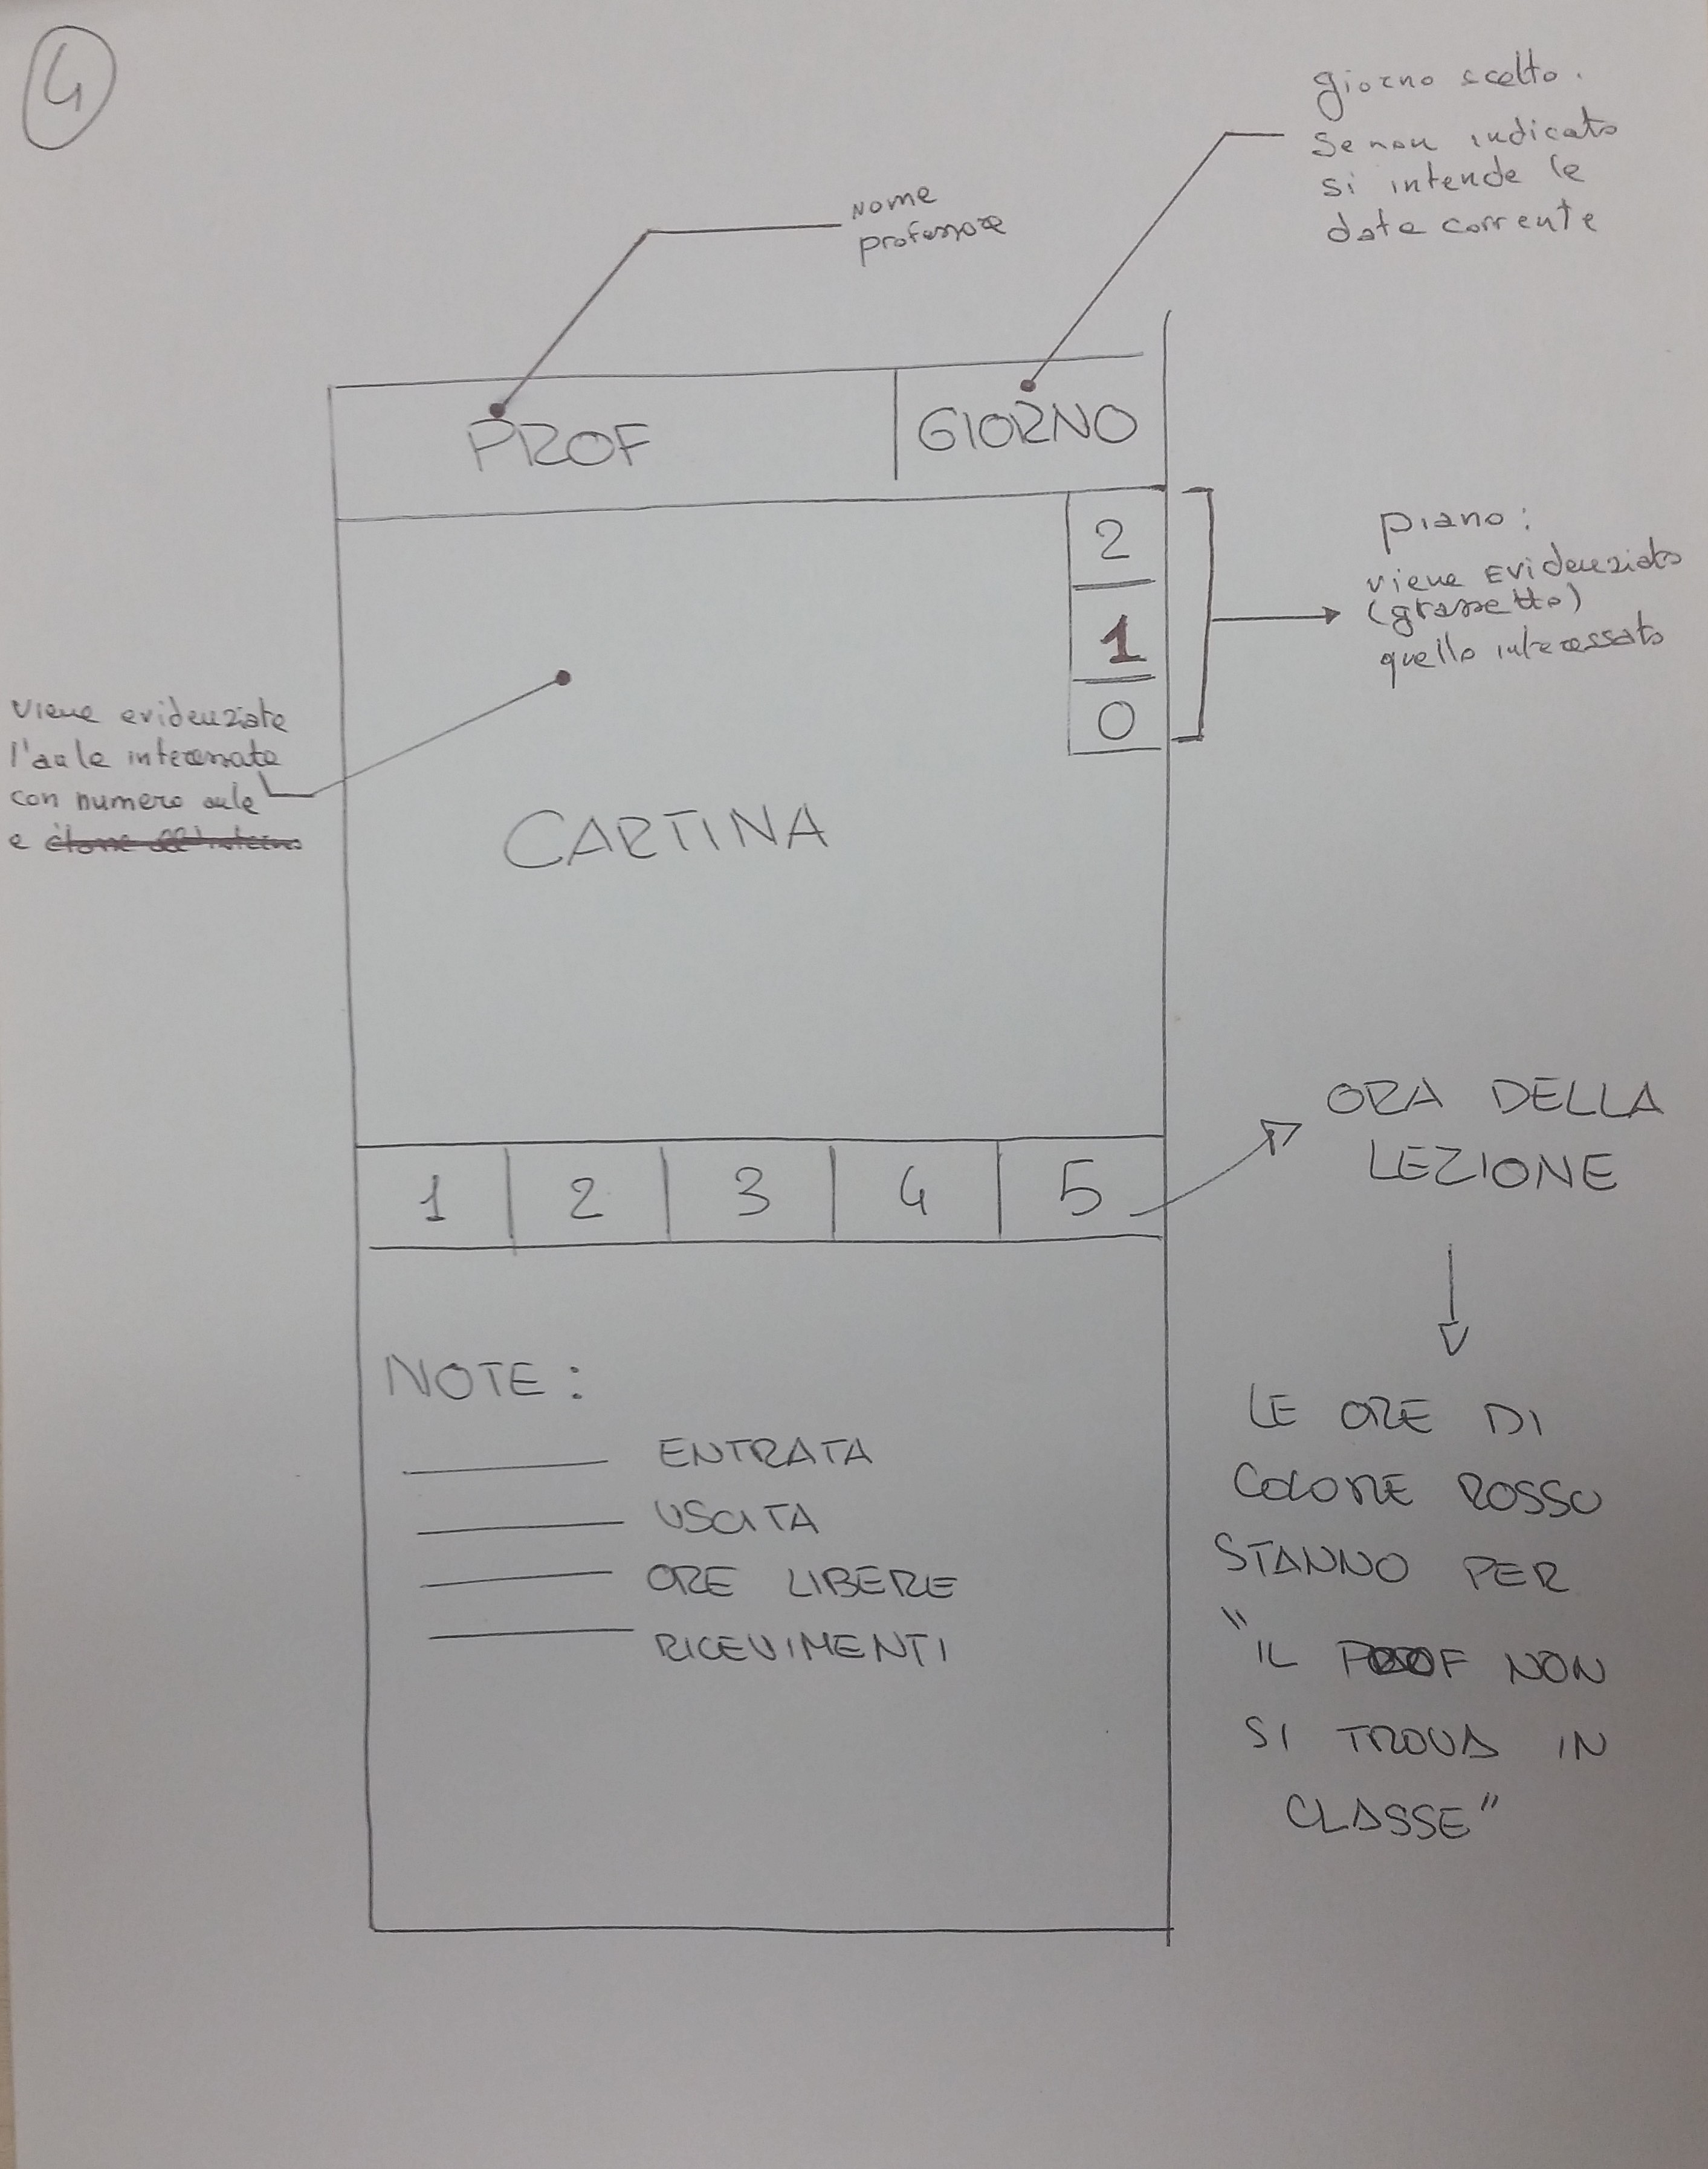 4
giorno scelto.
se non indicato
si intende la
data corrente
nome
professore
PROF
GIORNO
2
1
0
piano:
viene evidenziato
(grassetto)
quello interessato
viene evidenziata
l'aula interessata
con numero aula
e
CARTINA
1 2 3 4 5
ORA DELLA
LEZIONE
LE ORE DI
COLORE ROSSO
STANNO PER
"IL PROF NON
SI TROVA IN
CLASSE"
NOTE:
ENTRATA
USCITA
ORE LIBERE
RICEVIMENTI